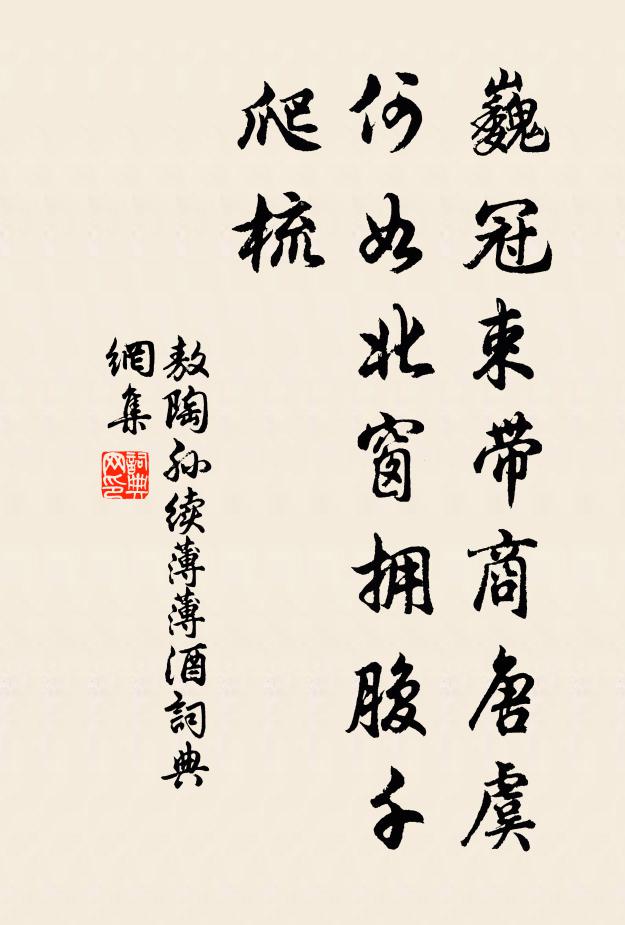 巍冠束带商唐虞
何如北窗拥腹千
爬梳
敖陶孙续薄薄酒詞典
網集
詞典网印